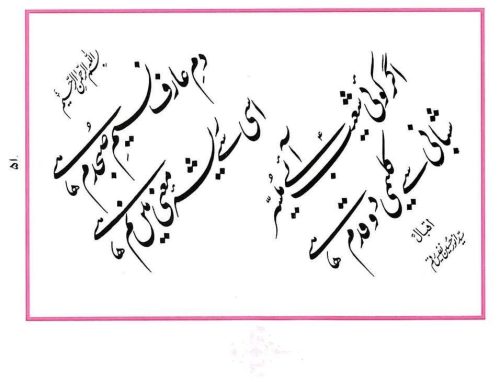 بسم اللہ الرحمن الرحیم
دمِ عارف نسیمِ صبحدم ہے
اسی سے ریشۂ معنی میں نم ہے
اگر کوئی شعیب آئے میسّر
شبانی سے کلیمی دو قدم ہے
اقبالؒ
سید انور حسین نفیس رقم
۵۱۰